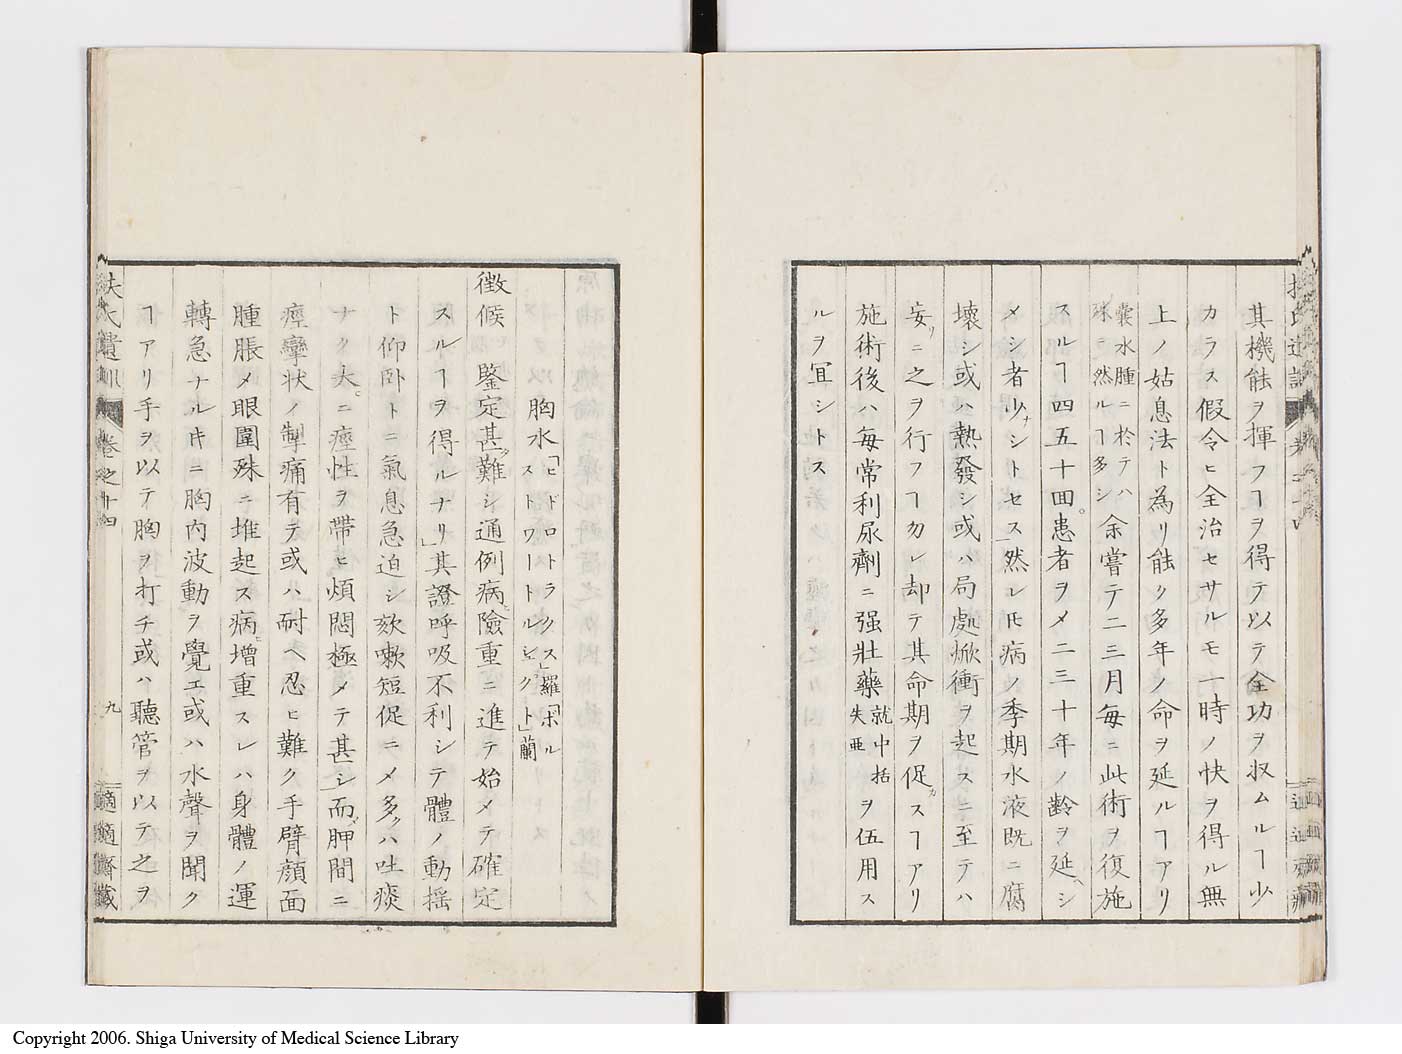 其機能ヲ揮フヿヲ得テ以テ全功ヲ収ムルヿ少
カラス假令ヒ全治セサルモ一時ノ快ヲ得ル無
上ノ姑息法ト為リ能ク多年ノ命ヲ延ルヿアリ
囊水腫ニ於テハ
殊ニ然ルヿ多シ
余嘗テ二三月毎ニ此術ヲ復施
スルヿ四五十回患者ヲメ二三十年ノ齡ヲ延ヘシ
メシ者少ナシトセス」然レ𪜈病ノ季期水液既ニ腐
壊シ或ハ熱發シ或ハ局処焮衝ヲ起スニ至テハ
妄リニ之ヲ行フヿ勿レ却テ其命期ヲ促カスヿアリ
施術後ハ毎常利尿劑ニ强壯藥
就中括
失亜
ヲ伍用ス
ルヲ冝シトス
胸水
「ヒドロトラクス」羅「ボル
ストワートルシュクト」蘭
徴候 鑒定甚タ難シ通例病險重ニ進テ始メテ確定
スルヿヲ得ルナリ」其證呼吸不利シテ體ノ動揺
ト仰卧トニ氣息急迫シ欬嗽短促ニメ多クハ吐痰
ナク大ニ痙性ヲ帶ヒ煩悶極メテ甚シ」而メ胛間ニ
痙攣状ノ掣痛有テ或ハ耐ヘ忍ヒ難ク手臂顔面
腫脹メ眼圍殊ニ堆起ス病ヒ增重スレハ身體ノ運
轉急ナル𪜈ニ胸内波動ヲ覺エ或ハ水聲ヲ聞ク
ヿアリ手ヲ以テ胸ヲ打チ或ハ聽管ヲ以テ之ヲ
扶氏遺訓
卷之十四
九
適適齋藏
Copyright 2006. Shiga University of Medical Science Library